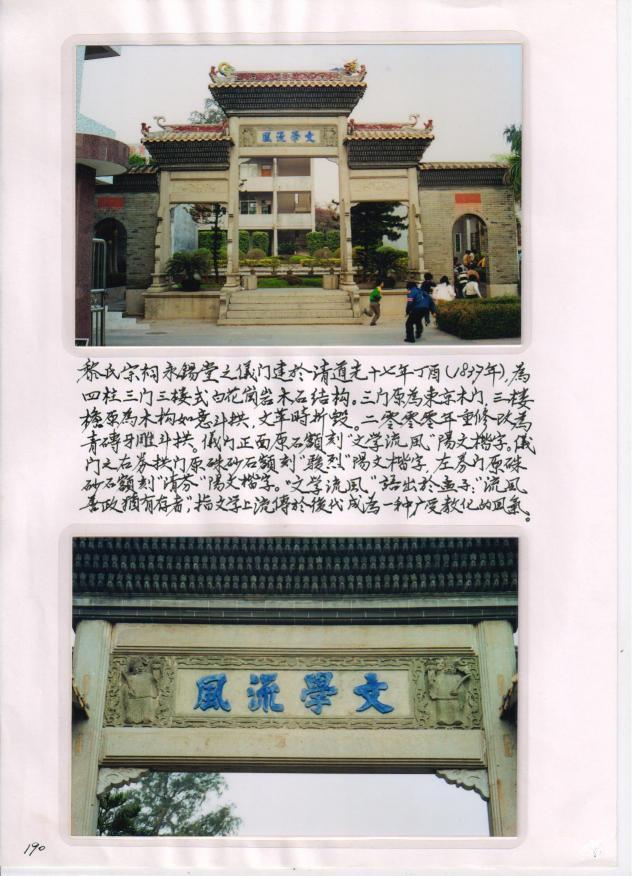 文學流風
黎氏宗祠永錫堂之儀门建於清道光十七年丁酉(1837年),為
四柱三门三楼式白花崗岩木石结构。三门原為東京木门,三楼
檐原為木构如意斗拱,文革時折毁。二零零零年重修改為
青磚牙雕斗拱。儀门正面原石額刻"文学流風"陽文楷字。儀
门之右券拱门原硃砂石額刻"駿烈"陽文楷字,左券门原硃
砂石額刻"清芬"陽文楷字。"文学流風"語出於孟子:"流風
善政猶有存者",指文学上流傳於後代成為一种广受教化的風氣。
文學流風
190